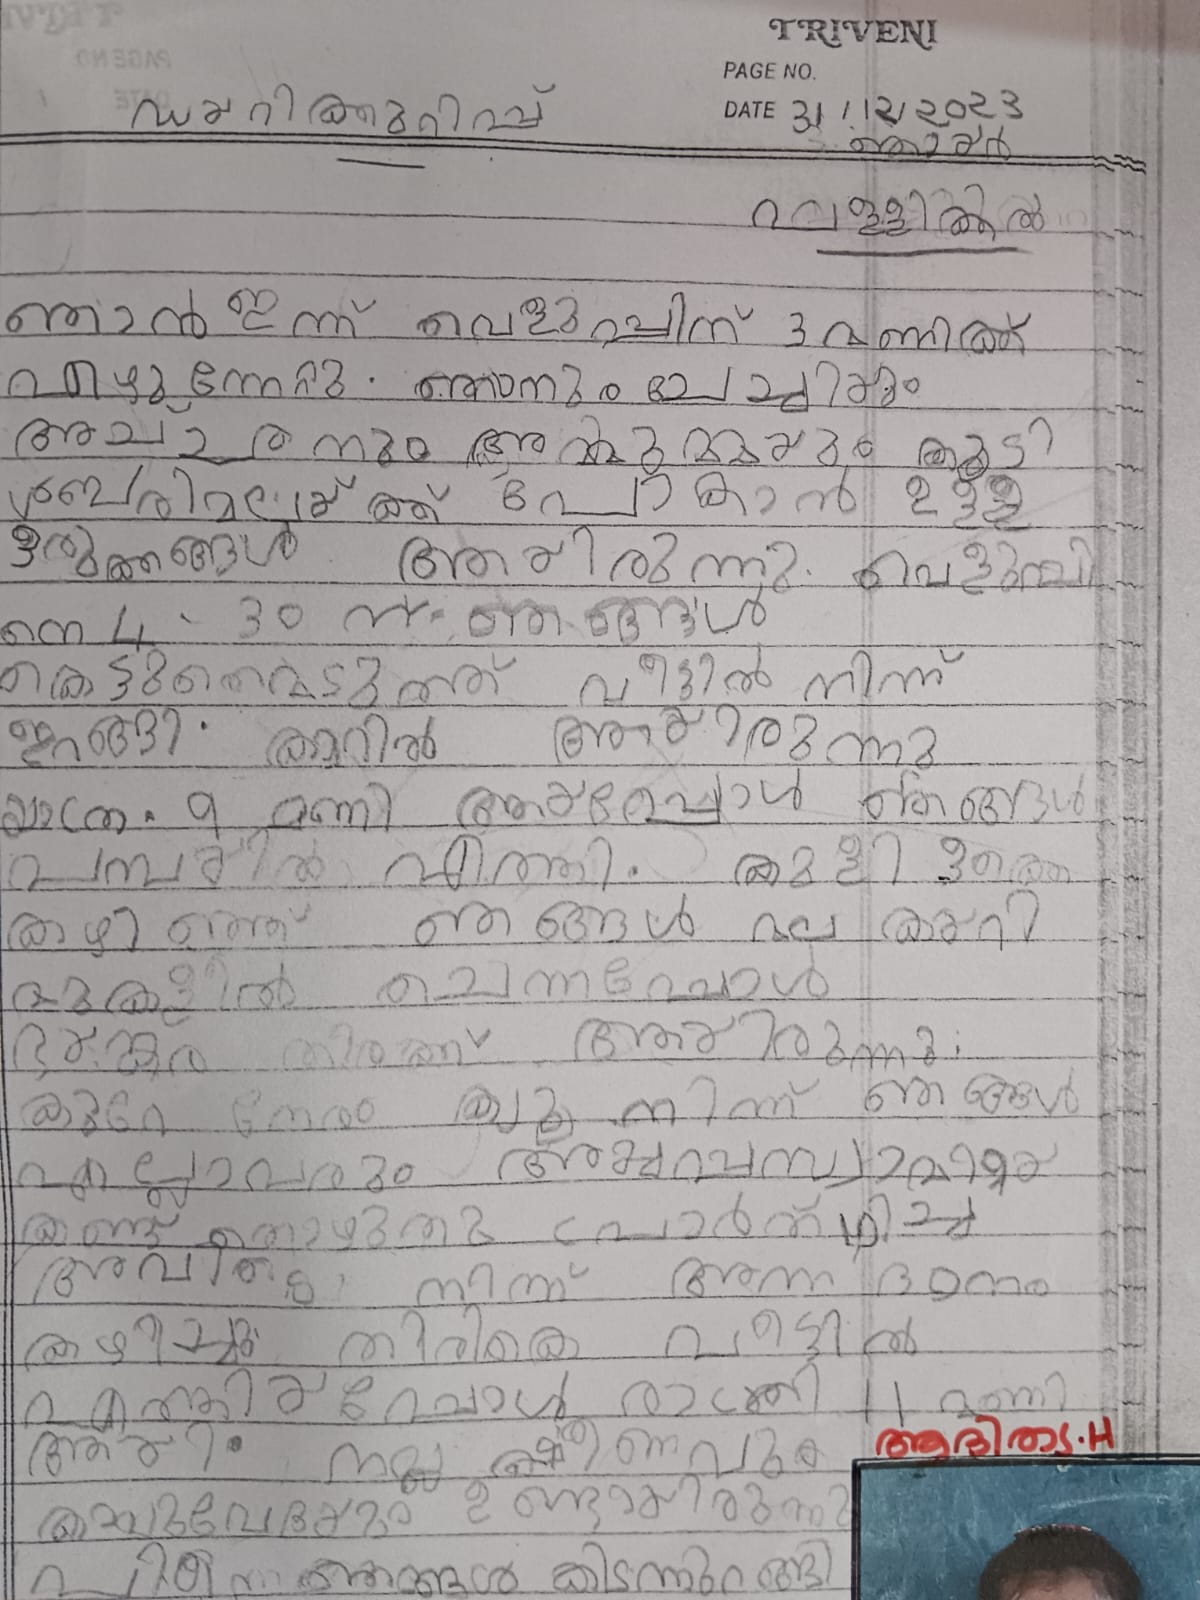 TRIVENI
PAGE NO.
DATE 31/12/2023
ഡയറിക്കുറിപ്പ്
ഞായർ
പള്ളിക്കൽ
ഞാൻ ഇന്ന് വെളുപ്പിന് 3 മണിക്ക്
എഴുന്നേറ്റു. ഞാനും ചേച്ചിയും
അച്ഛനും അമ്മുമ്മയും കൂടി
ശബരിമലയ്ക്ക് പോകാൻ ഉള്ള
ഒരുക്കങ്ങൾ ആയിരുന്നു. വെളുപ്പി
നെ 4.30 ന് ഞങ്ങൾ
കെട്ടുമെടുത്ത് വീട്ടിൽ നിന്ന്
ഇറങ്ങി. കാറിൽ ആയിരുന്നു
യാത്ര. 9 മണി ആയപ്പോൾ ഞങ്ങൾ
പമ്പയിൽ എത്തി. കുളി ഒക്കെ
കഴിഞ്ഞ് ഞങ്ങൾ മല കയറി
മുകളിൽ ചെന്നപ്പോൾ
ഭയങ്കര തിരക്ക് ആയിരുന്നു.
കുറെ നേരം ക്യൂ നിന്ന് ഞങ്ങൾ
എല്ലാവരും അയ്യപ്പസ്വാമിയെ
കണ്ട് തൊഴുതു പ്രാർത്ഥിച്ചു
അവിടെ നിന്ന് അന്നദാനം
കഴിച്ചു തിരികെ വീട്ടിൽ
എത്തിയപ്പോൾ രാത്രി 11 മണി
ആയി. നല്ല ക്ഷീണവും
കാലുവേദനയും ഉണ്ടായിരുന്നു
ഞങ്ങൾ കിടന്നുറങ്ങി
ആദിത്യ.H